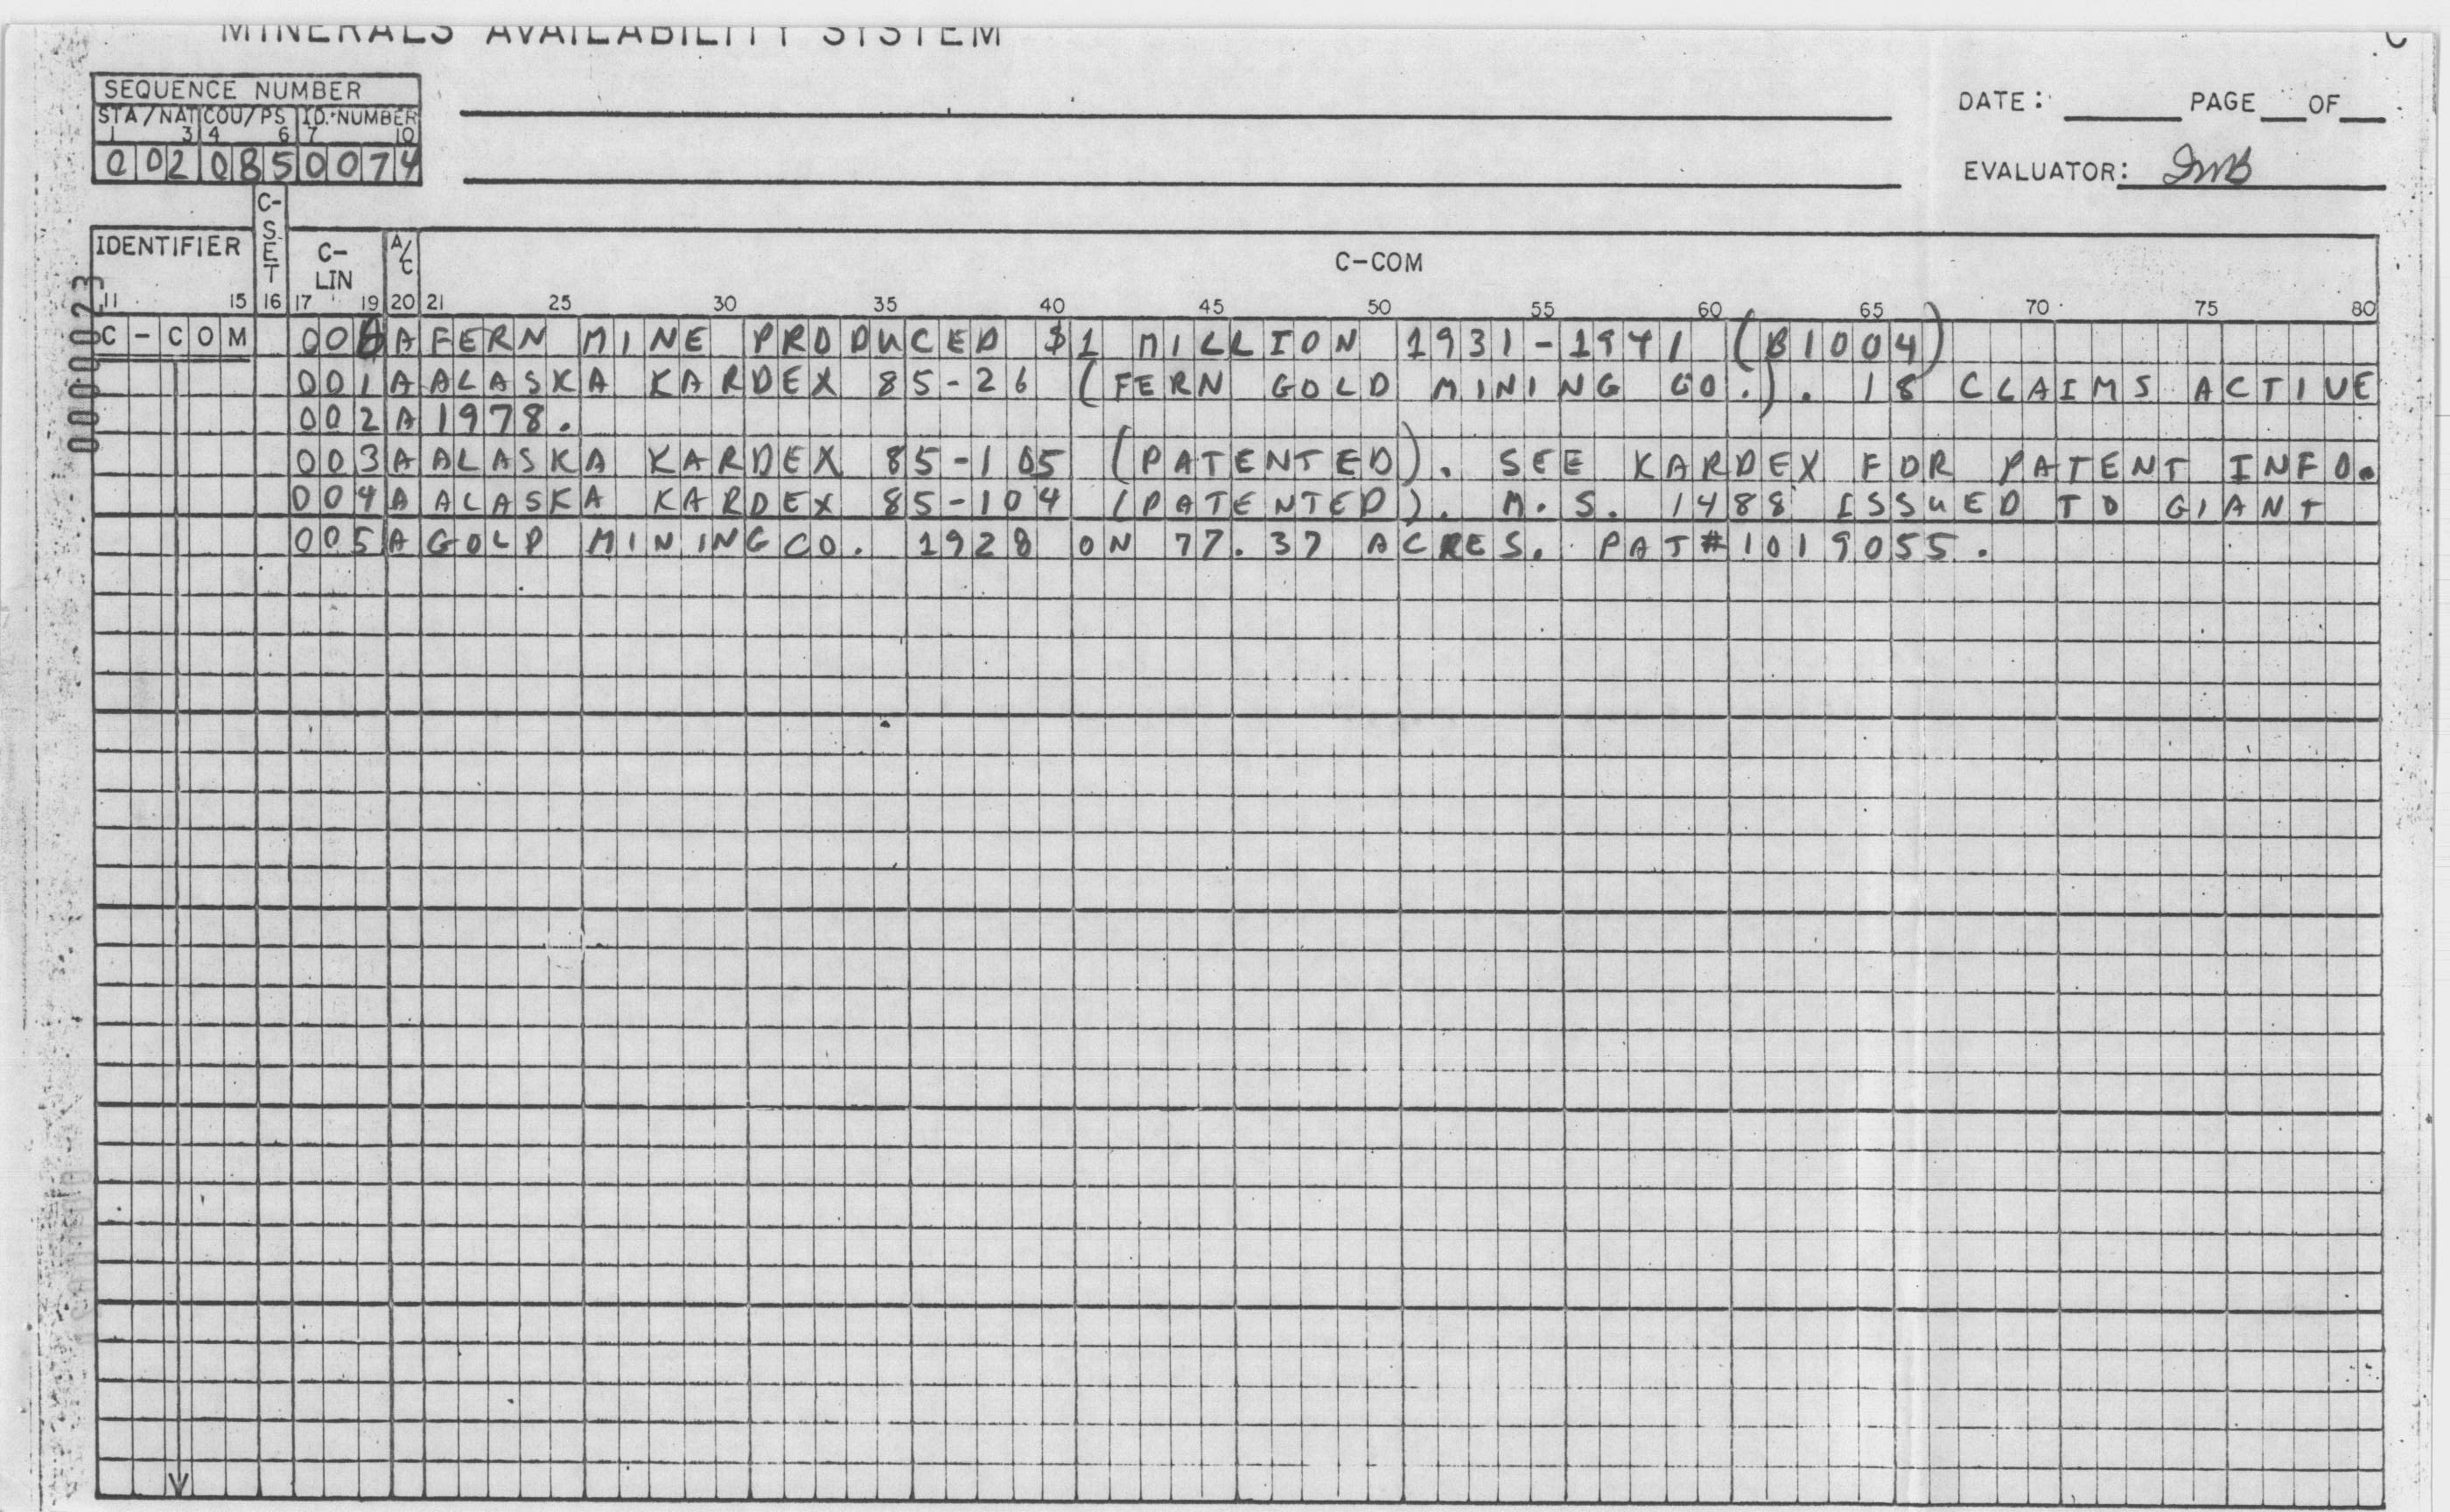 MINERALS AVAILABILITY SYSTEM
SEQUENCE NUMBER
STA/NAT COU/PS I.D. NUMBER
1 3 4 6 7 10
0020850074
DATE: PAGE OF
EVALUATOR:
IDENTIFIER C-SET C-LIN A/C C-COM
11 15 16 17 19 20 21 25 30 35 40 45 50 55 60 65 70 75 80
C-COM 000 A FERN MINE PRODUCED $1 MILLION 1931-1941 (B1004)
001 A ALASKA KARDEX 85-26 (FERN GOLD MINING CO.). 18 CLAIMS ACTIVE
002 A 1978.
003 A ALASKA KARDEX 85-105 (PATENTED). SEE KARDEX FOR PATENT INFO.
004 A ALASKA KARDEX 85-104 (PATENTED). M.S. 1488 ISSUED TO GIANT
005 A GOLD MINING CO. 1928 ON 77.37 ACRES. PAT#1019055.
0000023